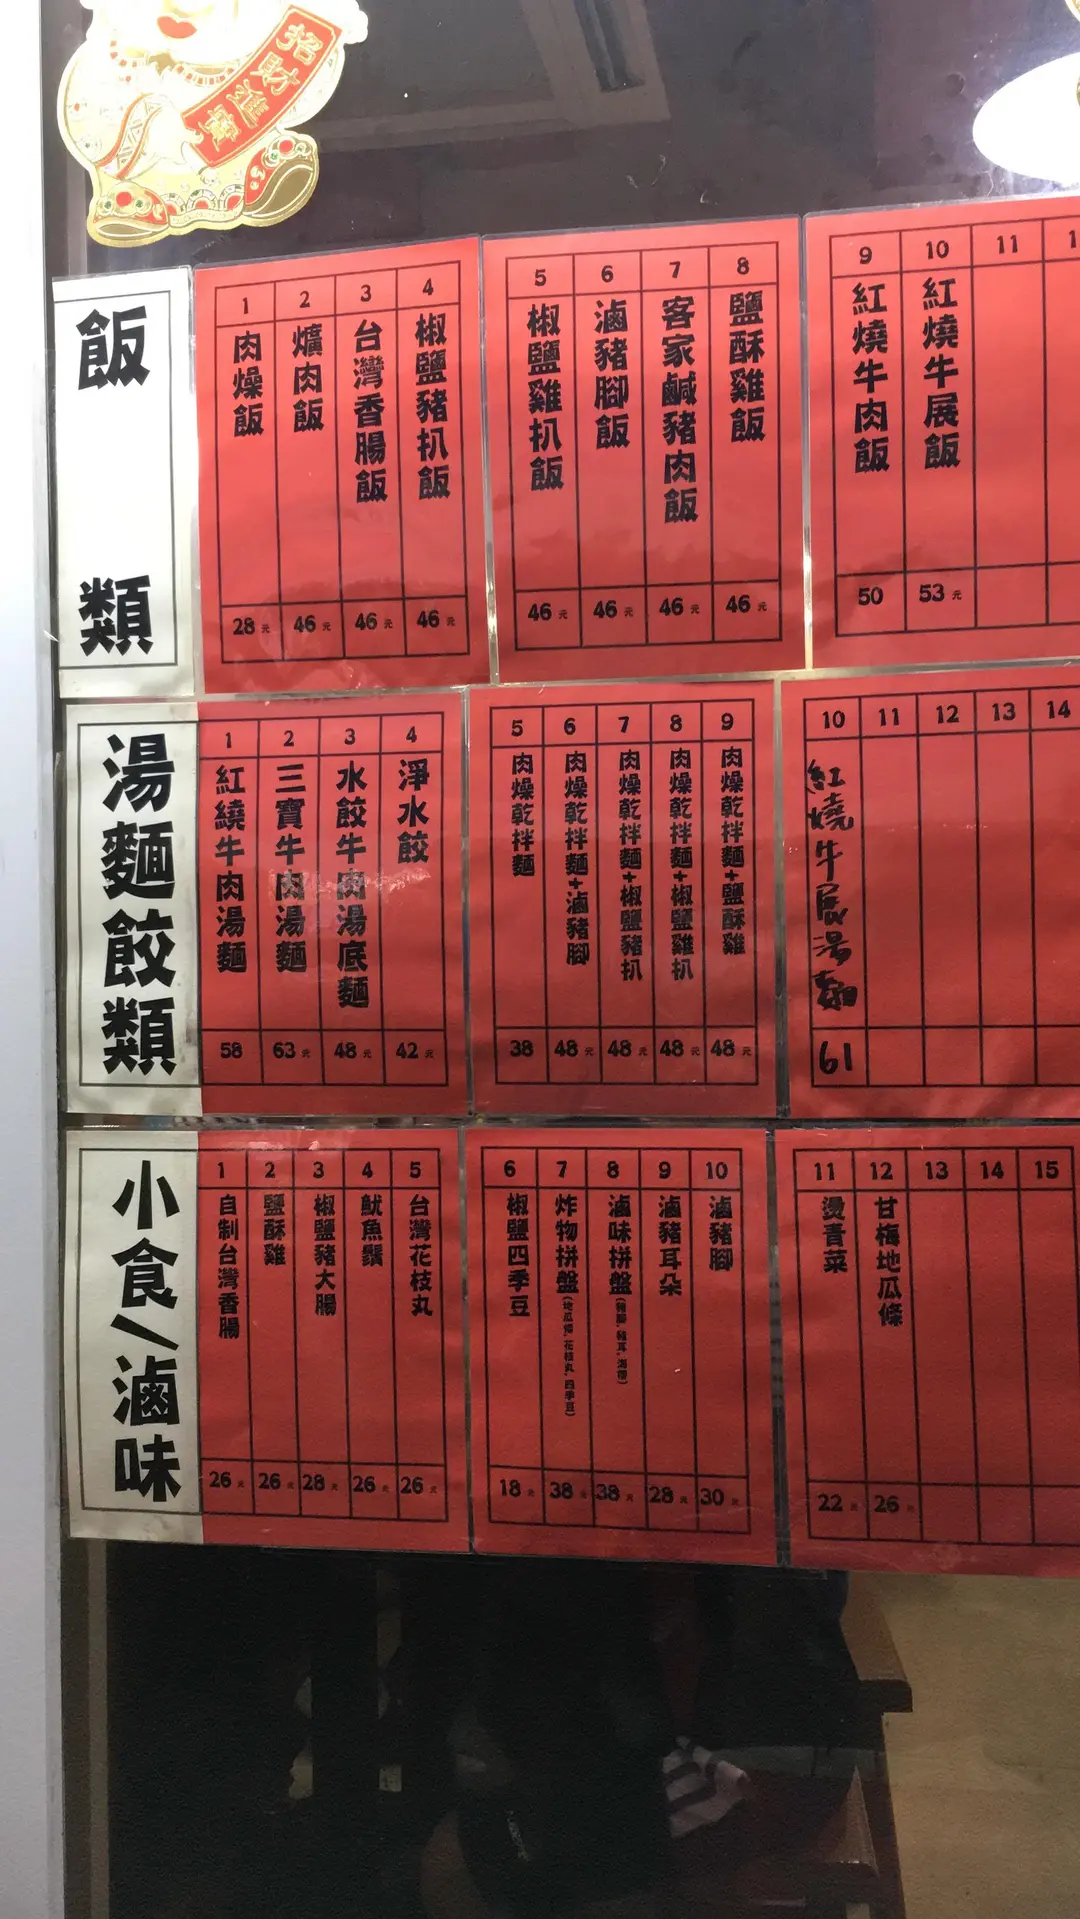 招財進寶
飯類
1 肉燥飯 28元
2 爌肉飯 46元
3 台灣香腸飯 46元
4 椒鹽豬扒飯 46元
5 椒鹽雞扒飯 46元
6 滷豬腳飯 46元
7 客家鹹豬肉飯 46元
8 鹽酥雞飯 46元
9 紅燒牛肉飯 50
10 紅燒牛展飯 53元
11
湯麵餃類
1 紅繞牛肉湯麵 58
2 三寶牛肉湯麵 63元
3 水餃牛肉湯底麵 48元
4 淨水餃 42元
5 肉燥乾拌麵 38
6 肉燥乾拌麵+滷豬腳 48元
7 肉燥乾拌麵+椒鹽豬扒 48元
8 肉燥乾拌麵+椒鹽雞扒 48元
9 肉燥乾拌麵+鹽酥雞 48元
10 紅燒牛展湯麵 61
11
12
13
14
小食/滷味
1 自制台灣香腸 26元
2 鹽酥雞 26元
3 椒鹽豬大腸 28元
4 魷魚鬚 26元
5 台灣花枝丸 26元
6 椒鹽四季豆 18元
7 炸物拼盤(地瓜條,花枝丸,四季豆) 38元
8 滷味拼盤(豬腳,豬耳,海帶) 38元
9 滷豬耳朵 28元
10 滷豬腳 30元
11 燙青菜 22元
12 甘梅地瓜條 26元
13
14
15